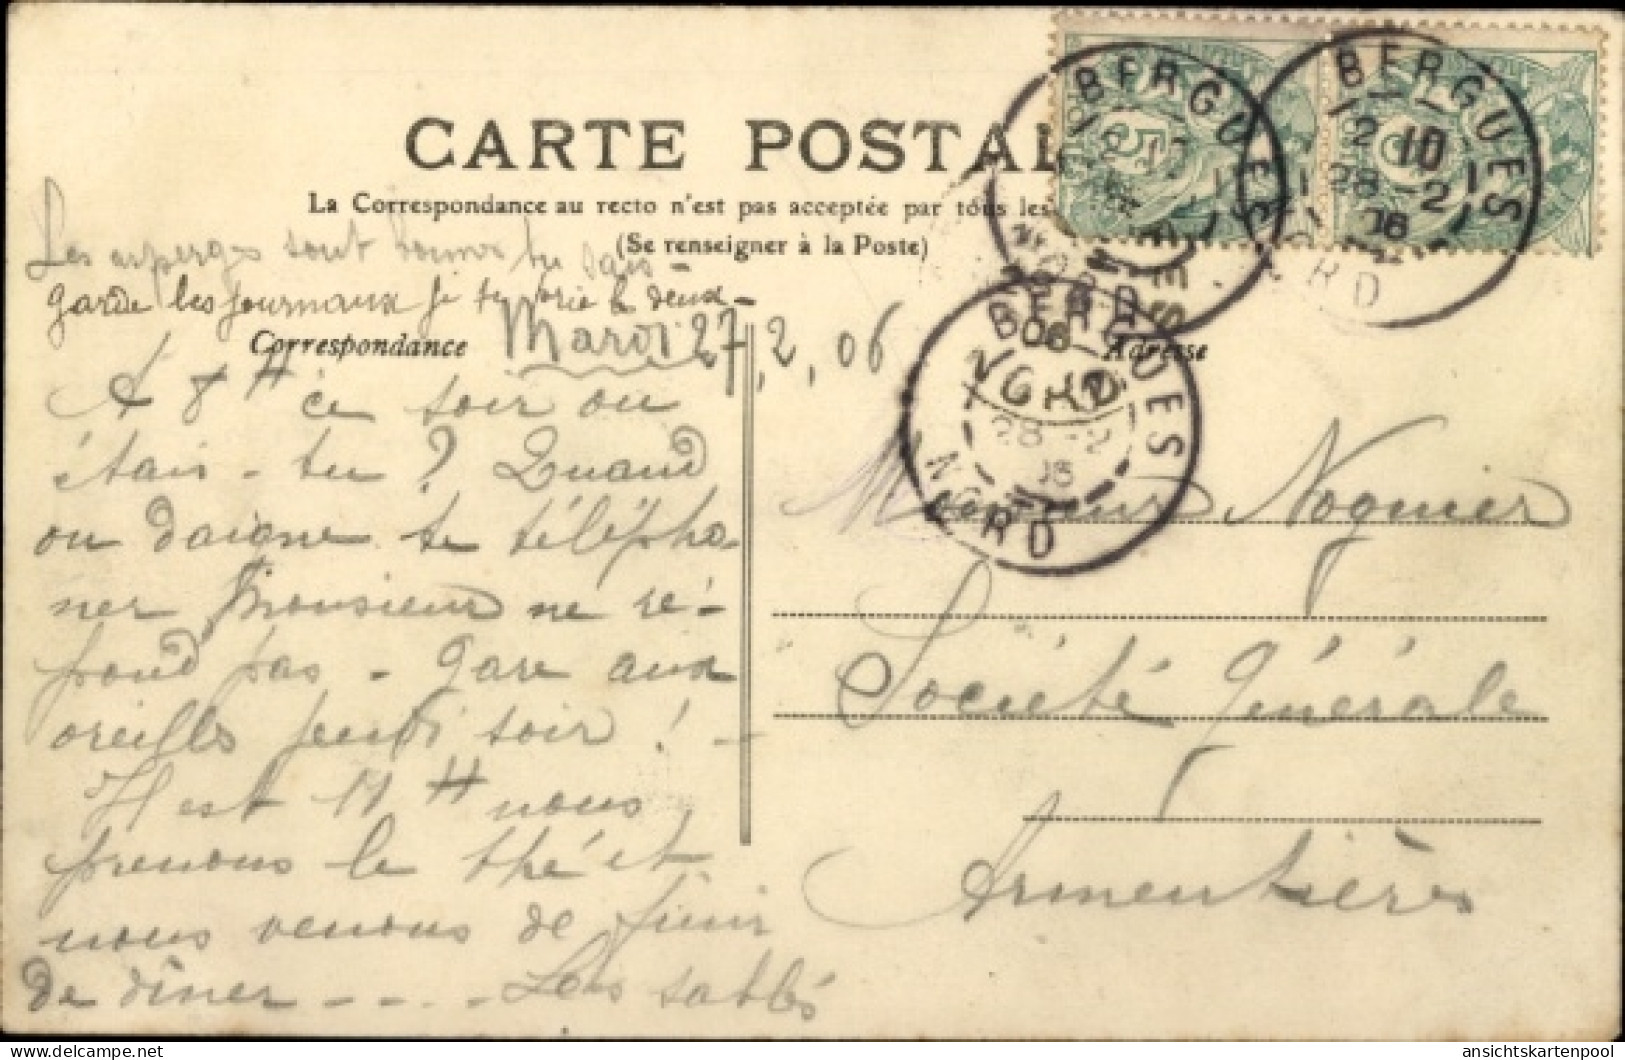 CARTE POSTALE
La Correspondance au recto n'est pas acceptée par tous les
(Se renseigner à la Poste)
Les asperges sont bonnes tu sais -
garde les journaux je te prie le deux -
Correspondance
Mardi 27, 2, 06
A 8 H ce soir où
étais-tu ? Quand
on daigne te télépho-
ner Monsieur ne ré-
pond pas - gare aux
oreilles jeudi soir ! -
Il est 11 H nous
prenons le thé et
nous venons de finir
de dîner - - - - Les sablés
Adresse
Monsieur Noguier
Société Générale
Armentières
BERGUES
5
NORD
BERGUES
12 10
28 -2
06
NORD
BERGUES
28 -2
06
NORD
delcampe.net
ansichtskartenpool